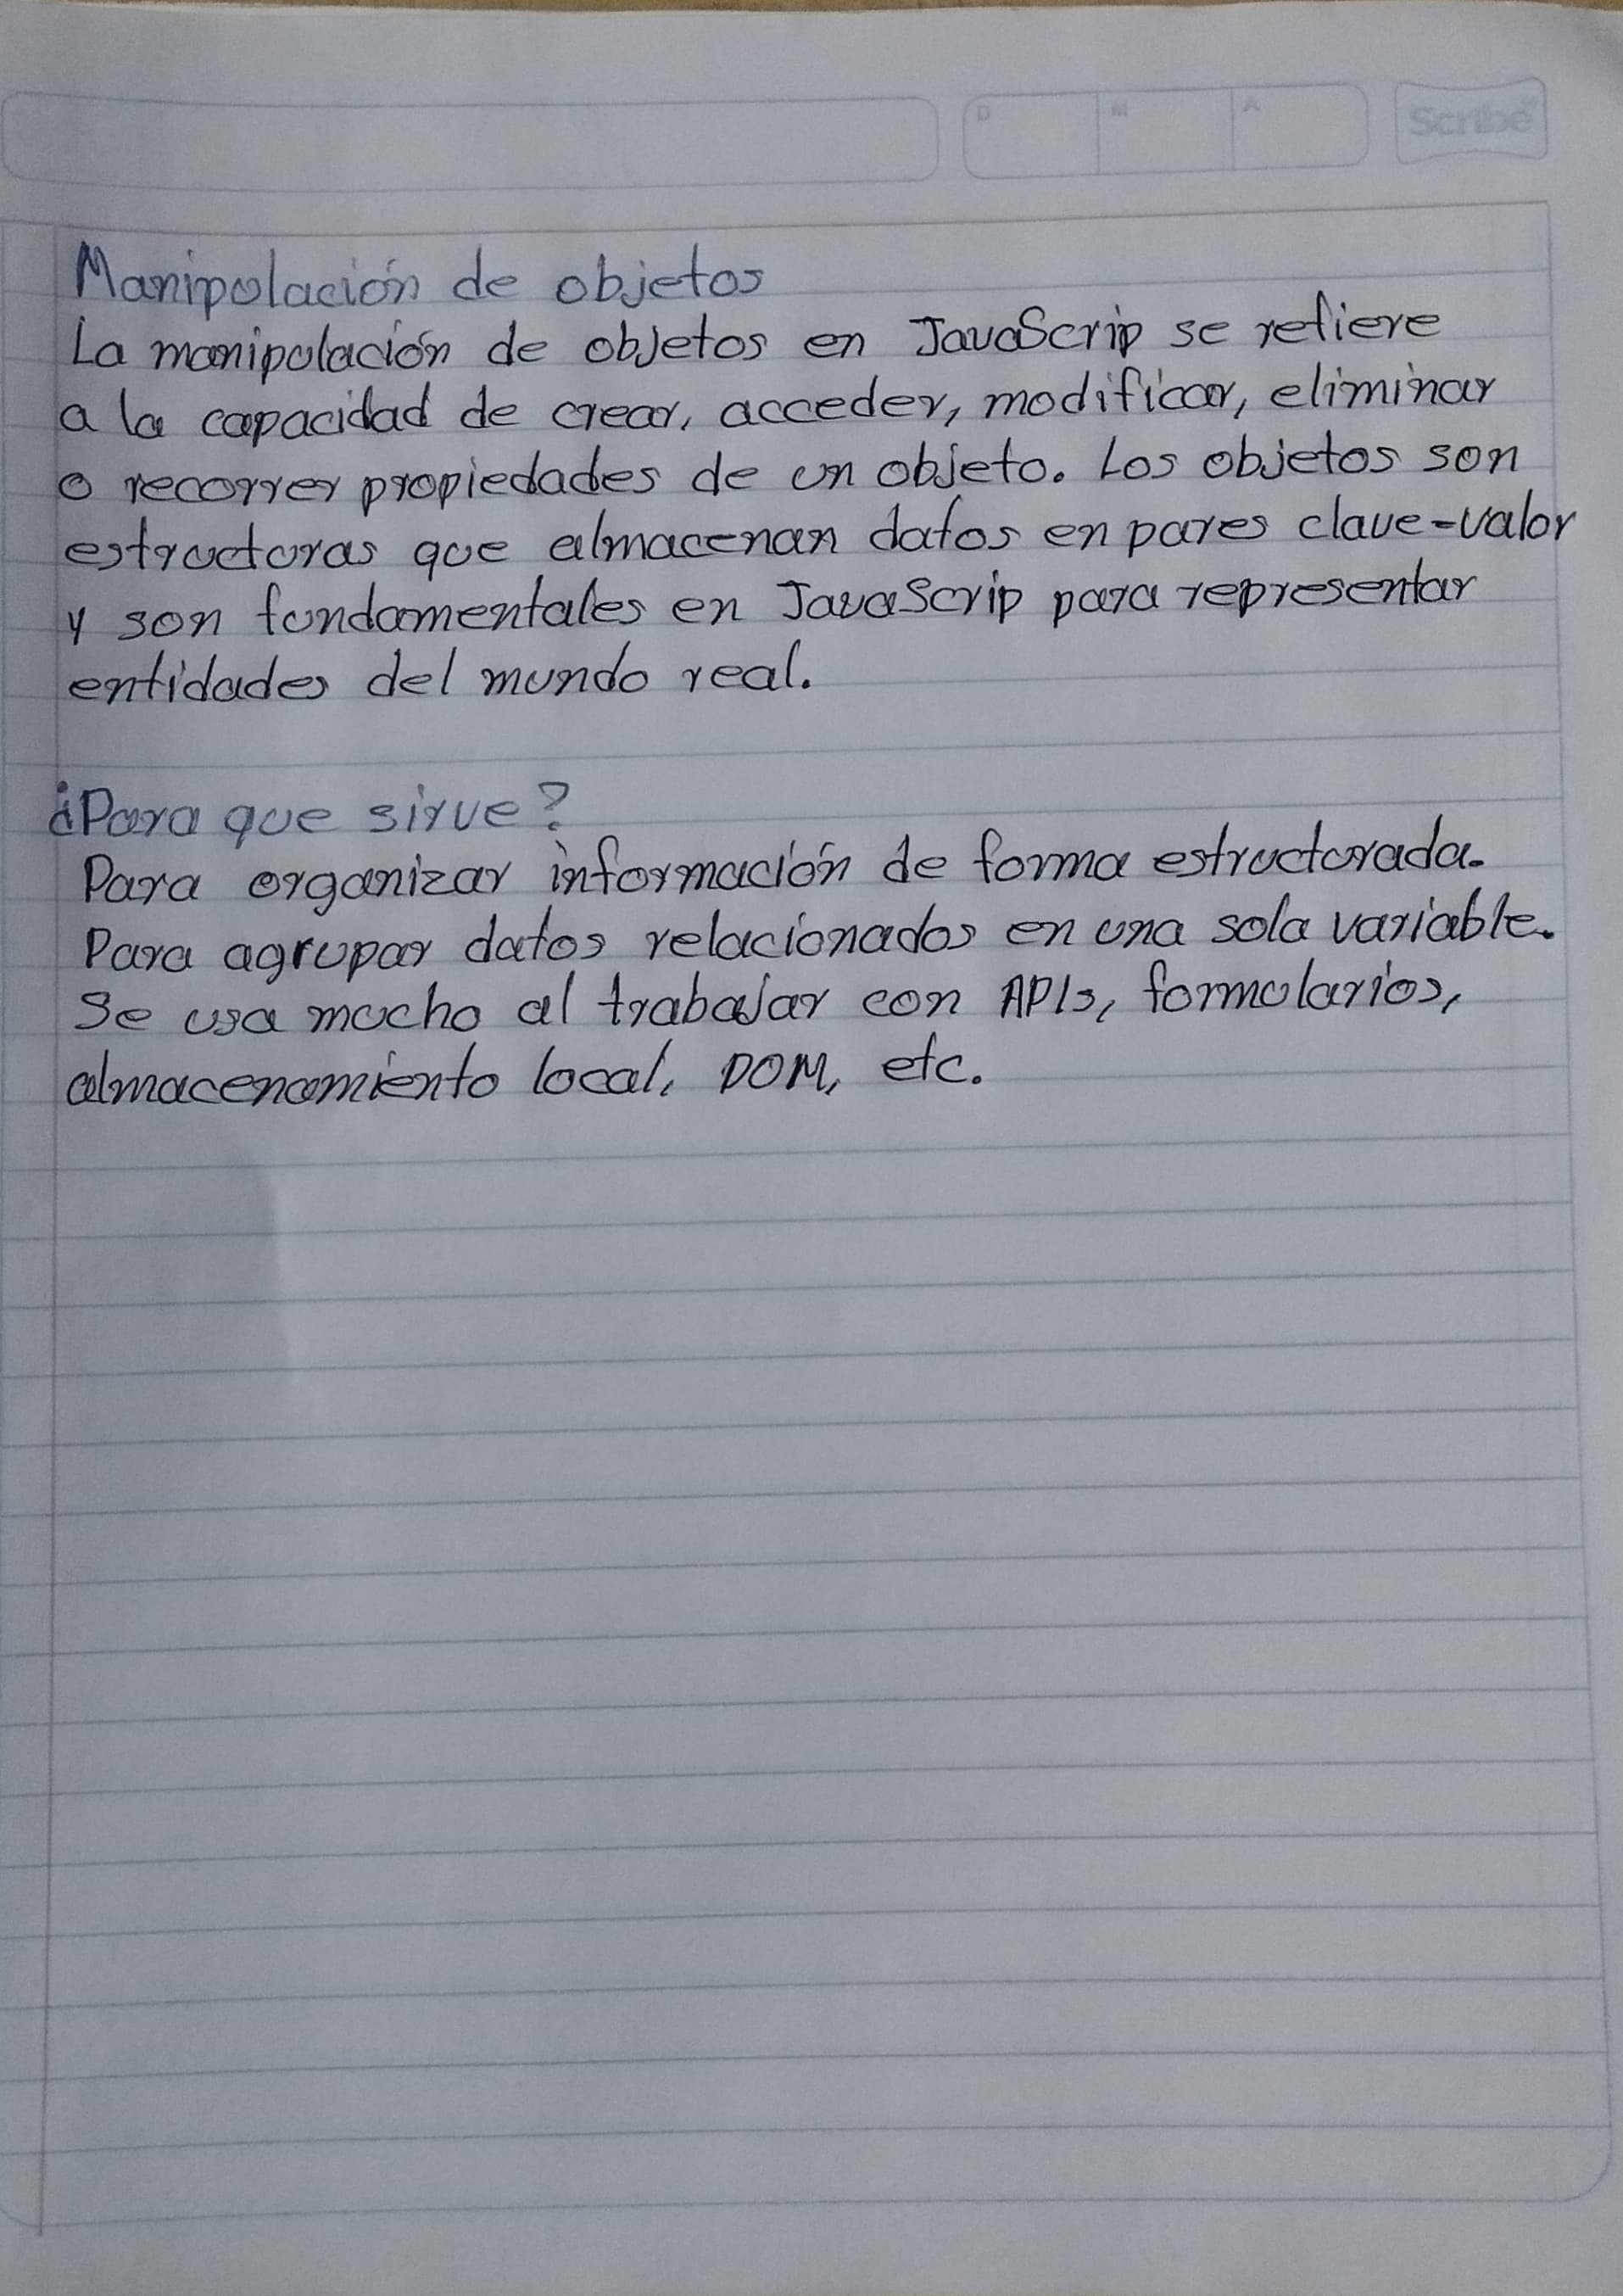 D M A Scribe
Manipulación de objetos
La manipulación de objetos en JavaScrip se refiere
a la capacidad de crear, acceder, modificar, eliminar
o recorrer propiedades de un objeto. Los objetos son
estructuras que almacenan datos en pares clave-valor
y son fundamentales en JavaScrip para representar
entidades del mundo real.
¿Para que sirve?
Para organizar información de forma estructurada.
Para agrupar datos relacionados en una sola variable.
Se usa mucho al trabajar con APIs, formularios,
almacenamiento local, DOM, etc.